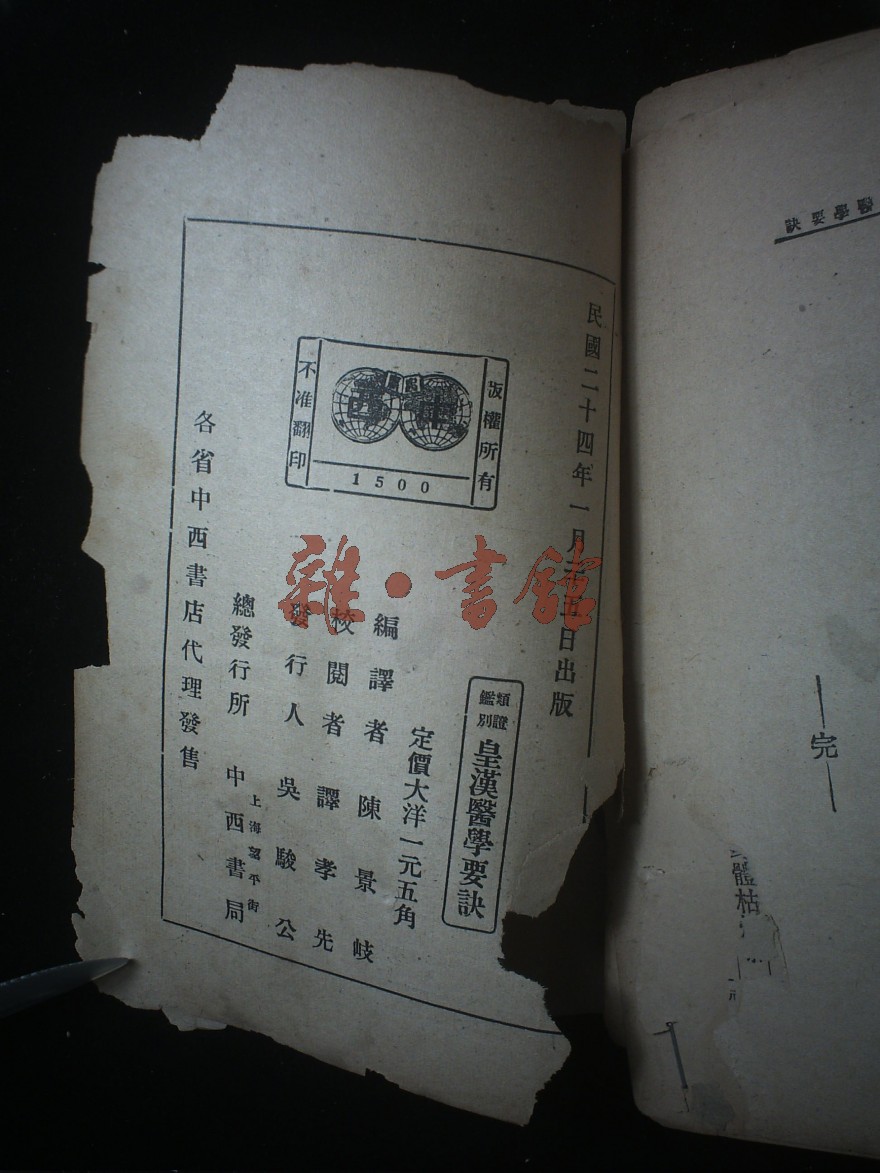 醫學要訣
完
體枯
民國二十四年一月五日出版
版權所有
不准翻印
中西
1500
類證
鑑別
皇漢醫學要訣
定價大洋一元五角
編譯者陳景岐
校閱者譯孝先
發行人吳駿公
上海望平街
總發行所中西書局
各省中西書店代理發售
雜·書館